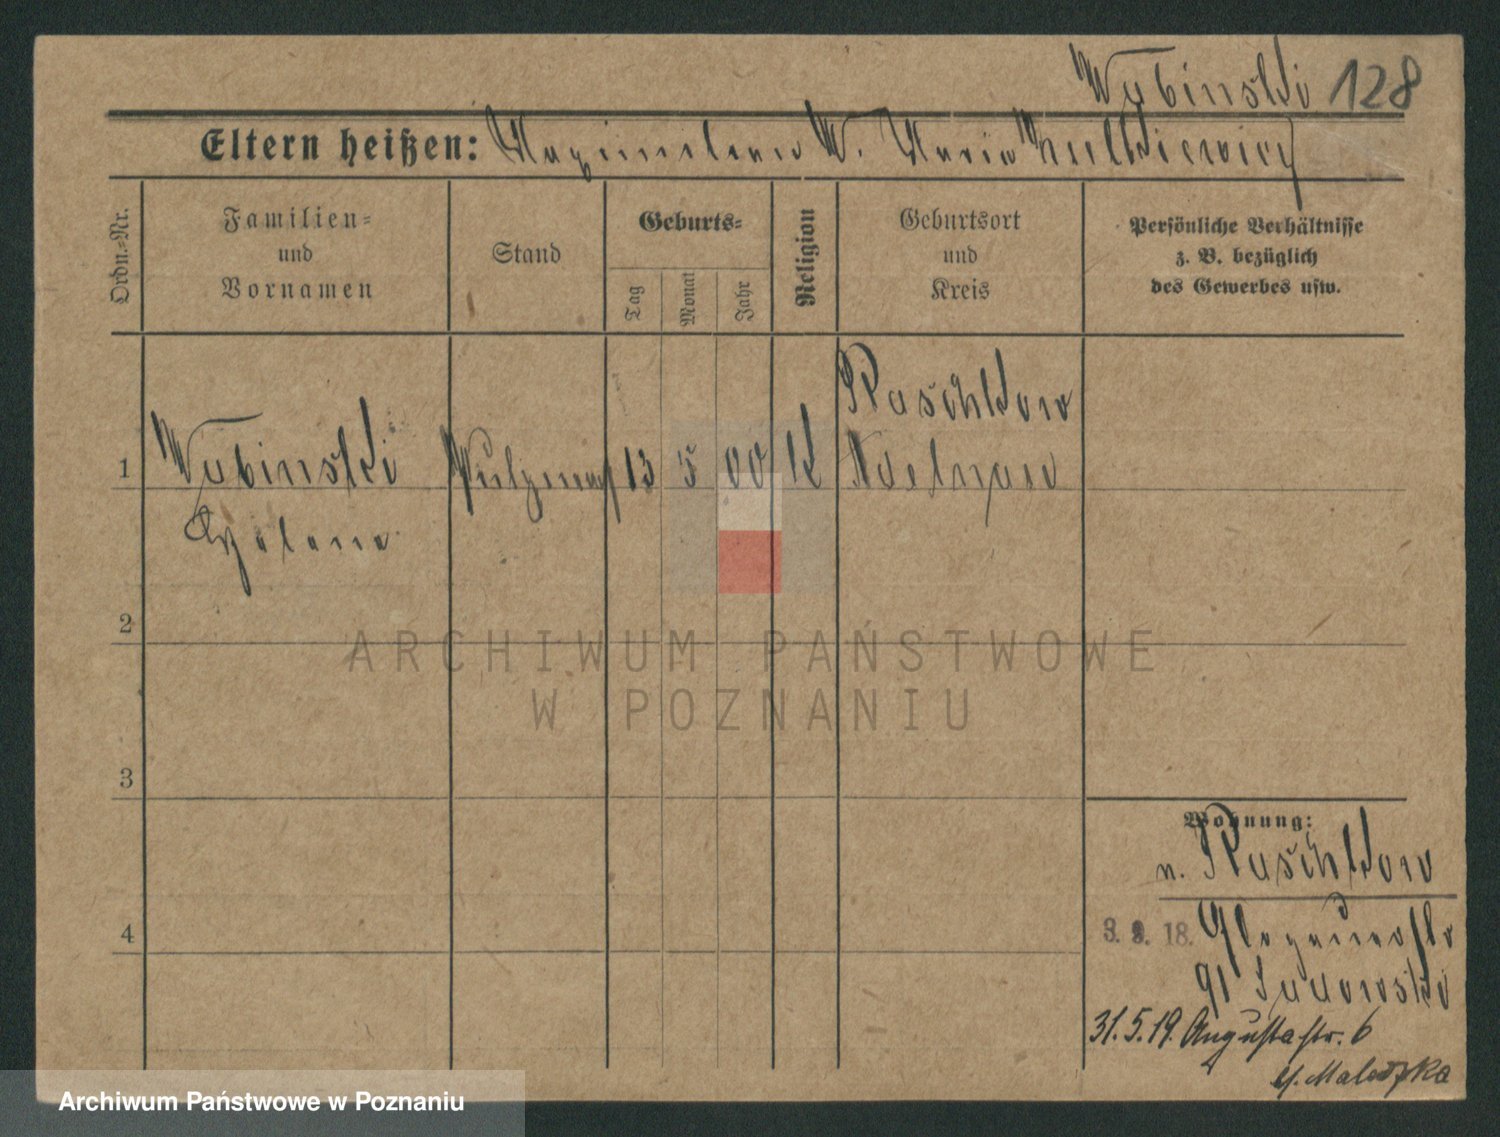 Wybinski 128
Eltern heißen: Maximilian W. Maria
Ordn.-Nr.
Familien-
und
Vornamen
Stand
Geburts-
Tag
Monat
Jahr
Religion
Geburtsort
und
Kreis
Persönliche Verhältnisse
z. B. bezüglich
des Gewerbes usw.
Raschkow
1 Wybinski 13 5 00 K Adelnau
Helene
2
3
4
ARCHIWUM PAŃSTWOWE
W POZNANIU
Wohnung:
n. Raschkow
3. 9. 18. Glogauerstr
91
31.5.19. Augustastr. 6
Archiwum Państwowe w Poznaniu